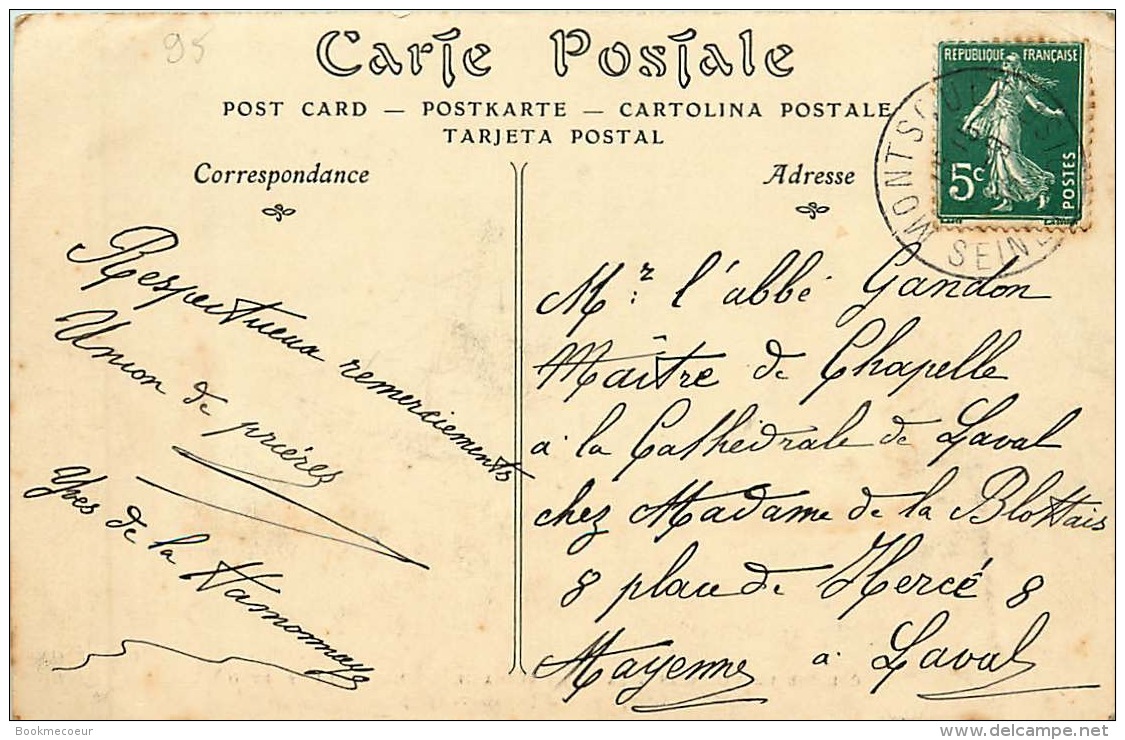 95
Carte Postale
POST CARD — POSTKARTE — CARTOLINA POSTALE
TARJETA POSTAL
Correspondance
Adresse
REPUBLIQUE FRANÇAISE
5c
POSTES
MONTSOULT
SEINE
Respectueux remerciements
Union de prières
Yves de la
Mr l'abbé Gandon
Maître de Chapelle
à la Cathédrale de Laval
chez Madame de la Blottais
8 place de Hercé 8
Mayenne à Laval
Bookmecoeur
www.delcampe.net